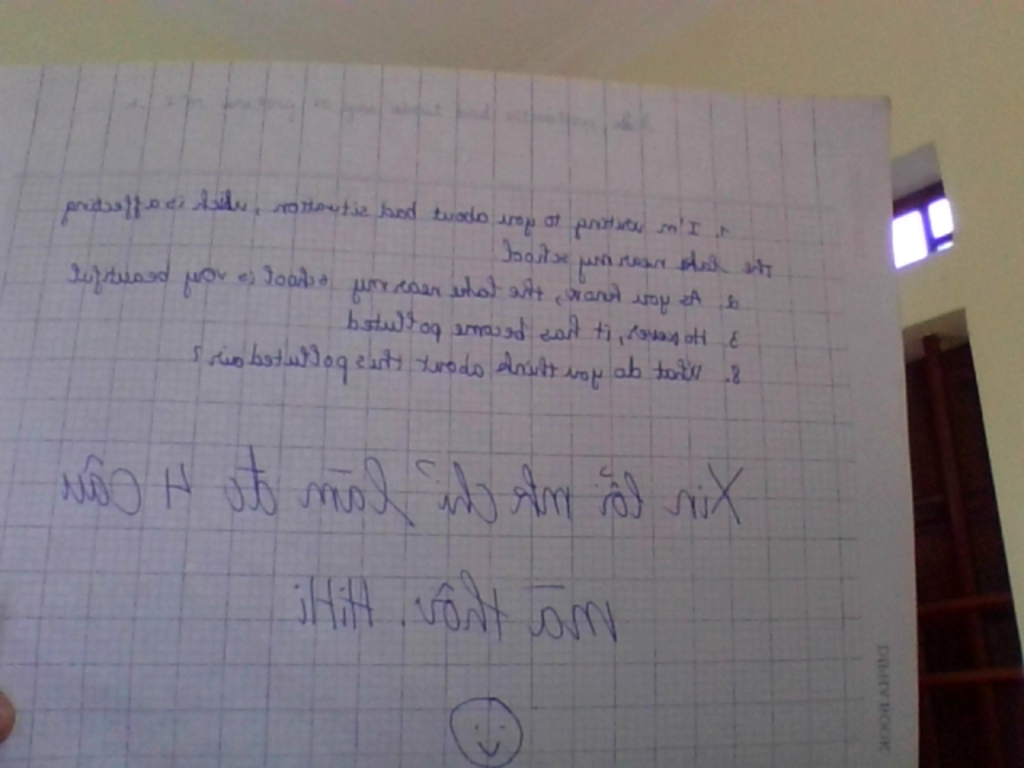 1. I'm writing to you about bad situation, which is affecting
the lake near my school
2. As you know, the lake near my school is very beautiful
3 However, it has become polluted
8. What do you think about this polluted air?
Xin lỗi mk chỉ làm đc 4 câu
mà thôi. HiHi